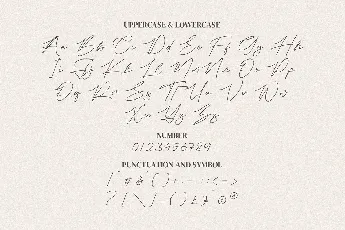 UPPERCASE & LOWERCASE
Aa Bb Cc Dd Ee Ff Gg Hh
Ii Jj Kk Ll Mm Nn Oo Pp
Qq Rr Ss Tt Uu Vv Ww
Xx Yy Zz
NUMBER
0123456789
PUNCTUATION AND SYMBOL